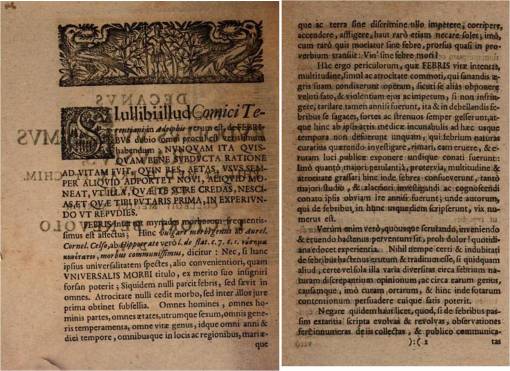 SI ullibi illud Comici Te-
rentiani in Adelphis verum est, de FEBRI-
BUS dubio omni procul est verissimum
habendum: NUNQUAM ITA QUIS-
QUAM BENE SUBDUCTA RATIONE
AD VITAM FUIT, QUIN RES, AETAS, USUS SEM-
PER ALIQUID ADPORTET NOVI, ALIQUID MO-
NEAT, UT ILLA, QUAE TE SCIRE CREDAS, NESCI-
AS, ET QUAE TIBI PUTARIS PRIMA, IN EXPERIUN-
DO UT REPUDIES.
FEBRIS inter tot myriades morborum frequentis-
simus est affectus; Hinc vulgaris morbus genus ab Aurel.
Cornel. Celso, ab Hippocrate verò l. de flat. c. 7. 
morbus communissimus, dicitur: Nec, si hanc
ipsius universalitatem spectes, alio convenientiori, quàm
UNIVERSALIS MORBI titulo, ex merito suo insigniri
forsas poterit; Siquidem nulli parcit febris, sed sævit in
omnes. Atrocitate nulli cedit morbo, sed inter illos jure
prima obtinet subsellia. Omnes homines, omnes ho-
minis partes, omnes ætates, utrumque sexum, omnis gene-
ris temperamenta, omne vitæ genus, idque omni anni &
diei tempore, omnibusque in locis ac regionibus, mariæ-
que
que ac terra sine discrimine ullo impetere, corripere,
accendere, affligere, haut rarò etiam necare solet; imò,
cum rarò quis moriatur sine febre, prorsus quasi in pro-
verbium transiit: Vin' sine febre mori?
Hæc ergo periculorum, quæ FEBRIS vitæ intentat,
multitudine, simul ac atrocitate commoti, qui sanandis æ-
gris suam condixerunt operam, sicuti se aliàs opponere
veloti fato, & violentiam ejus ac impetum, si non infrin-
gere, tardare tamen annisi fuerunt, ita & in debellandis fe-
bribus se sagaces, fortes ac strenuos semper gesserunt, at-
que hinc ab ipsis artis medicæ incunabulis ad hæc usque
tempora non defecerunt unquam, qui febrium naturam
curatius quotannis investigare, rimari, eam eruere, & e-
rutam luci publicæ exponere undique conati fuerunt:
Imò quantò major petulantiâ, protervia, multitudine
& atrocitate grassari hinc inde, febres consueverunt, tantò
majori studio, & alacriori investigandi ac cognoscendi
conatu ipsis obviam ire annisi fuerunt; inde autorum,
qui de febribus, in hunc usquediem scripserunt, vix nu-
merus est.
Verùm enim verò, quousque scrutando, inveniendo
& eruendo hactenus perventum sit, proh dolor! quotidi-
ana docet experientia. Nihil itempe certi & indubitati
de febribus hactenus erutum & traditum esse, si quidquam
aliud, certe vel sola illa varia diversitas circa febrium na-
turam discrepantium opinionum, ac circa earum genius,
causasque, imò etiam ortarum, & hinc inde rotarum
contentionum persuadere cuique satis poterit.
Negare quidem haut licet, quod, si de febribus pas-
sim extantia scripta evolvas & revolvas, observationes
ferè innumeras de iis collectas, & publico communica-
):( 2 tas